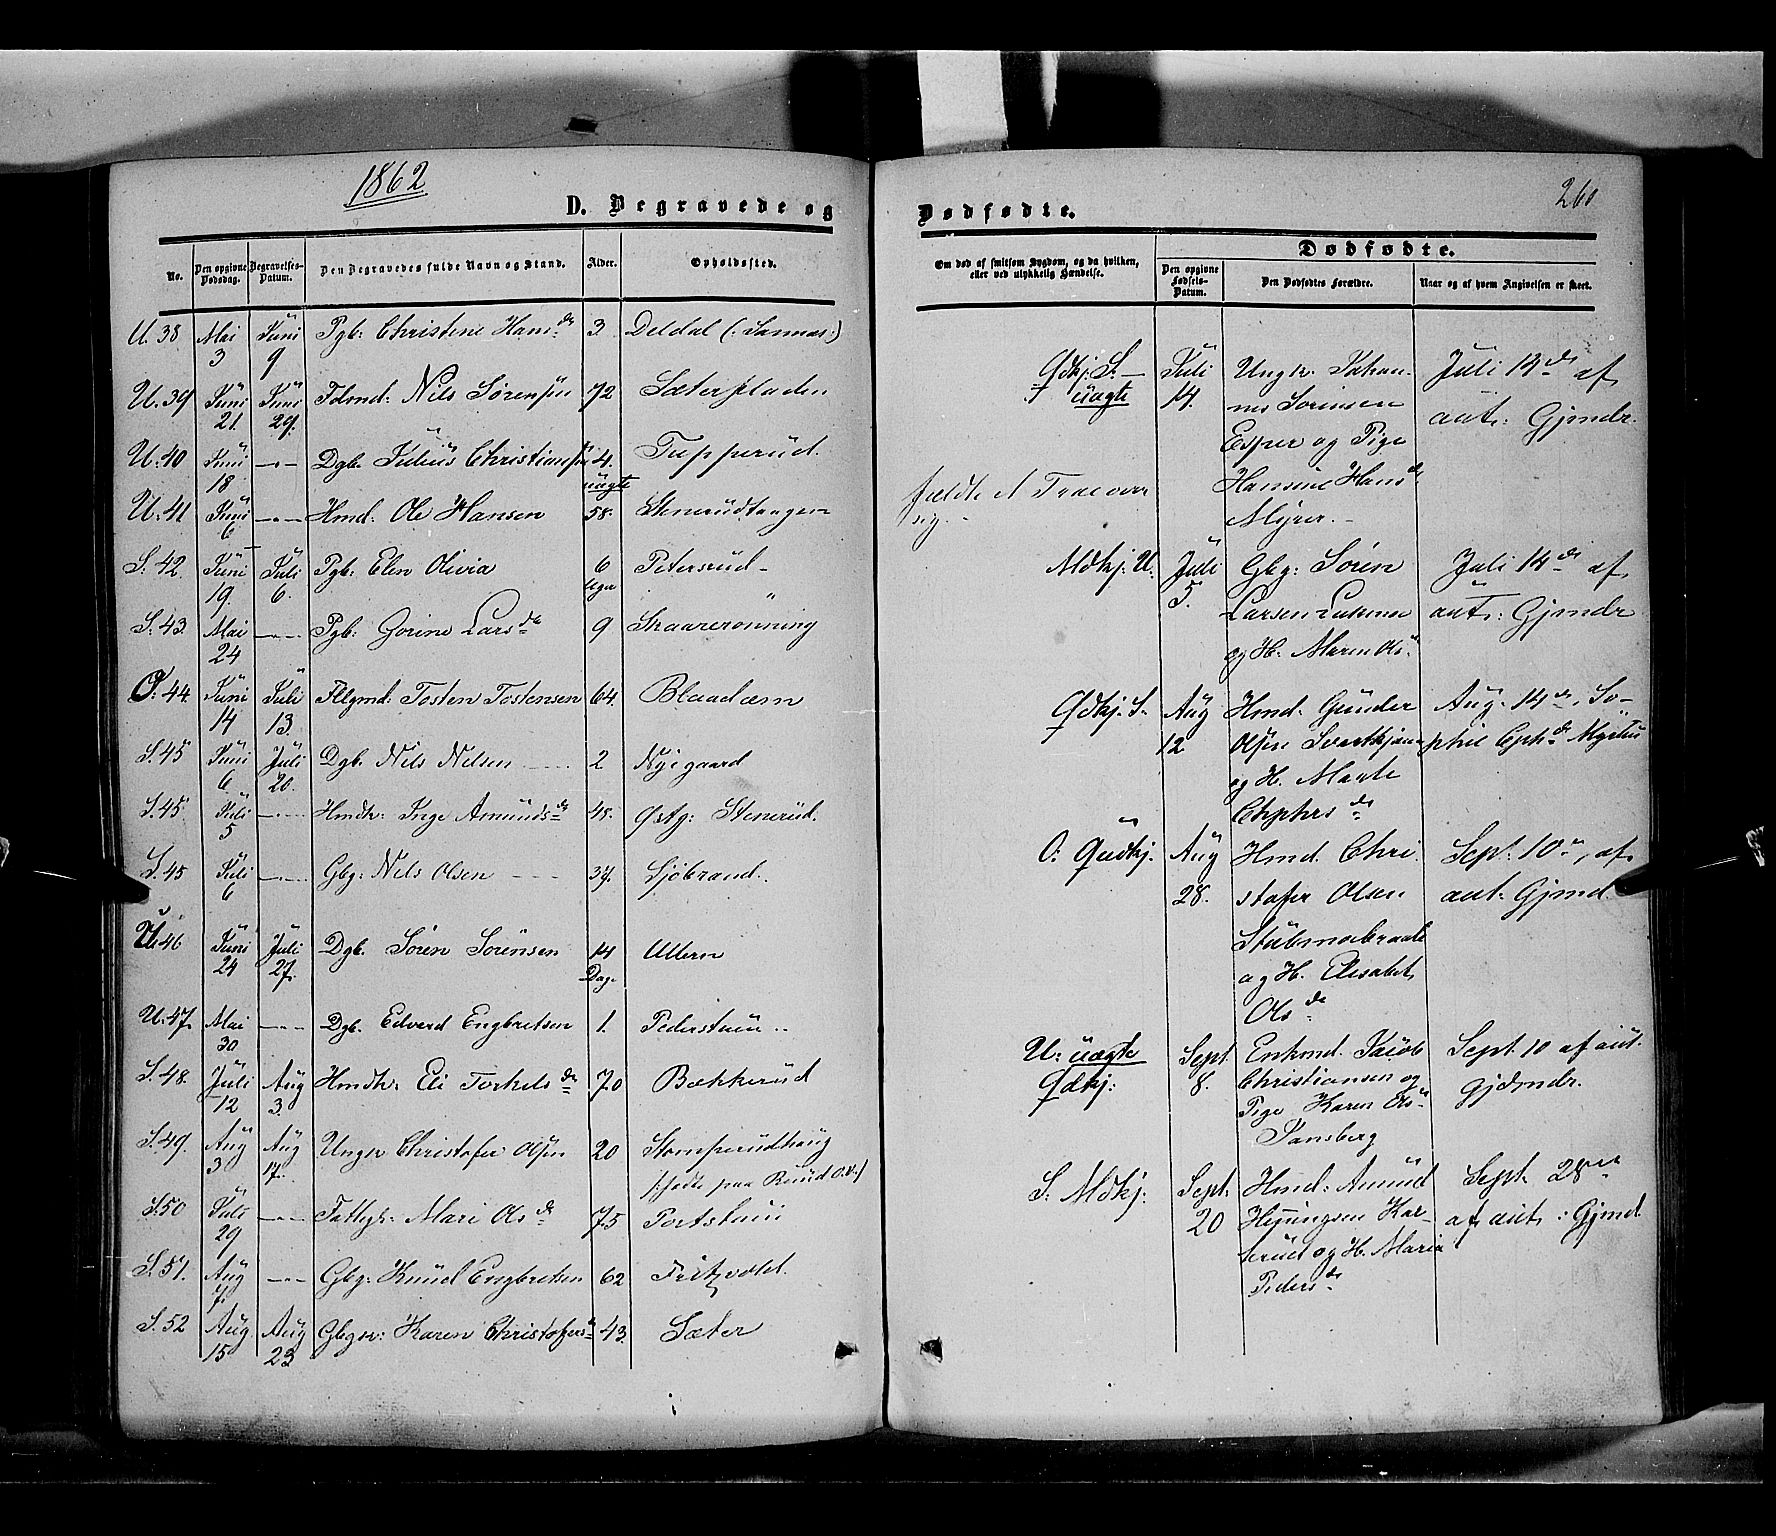 1862
D. Begravede og
No.
Den opgivne Dødsdag.
Begravelses-Datum.
Den Begravedes fulde Navn og Stand.
Alder.
Opholdssted.
U. 38 Mai 3 Juni 9 Pgb: Christine Hansd. 3 Deldal (: Sannas:)
U. 39 Juni 21. Juni 29. Fdmd: Nils Sørensen 72 Sæterpladen
U. 40 Juni 18 -„- Dgb: Julius Christiansen 4. uægte Tupperud.
U. 41 Juni 6 -„- Hmd: Ole Hansen 58. Stenerudtangen
S. 42 Juni 19. Juli 6. Pgb: Elen Olivia 6 Uger Petersrud
S. 43. Mai 24 -„- Pgb: Gorine Larsd. 9 Skaarerønning
O. 44. Juni 14 Juli 13. Fllgmd: Tosten Tostensen 64. Blaadæm
S. 45 Juni 6 Juli 20. Dgb. Nils Nilsen 2 Nyegaard
S. 45. Juli 5 -„- Hmdk: Inge Amundsd. 48. Østg: Stenerud.
S. 45 Juli 6 -„- Gbg: Nils Olsen 37. Sjøbrand.
U. 46 Juni 24 Juli 27. Dgb. Søren Sørensen 14 Dag. Ullern
U. 47. Mai 30 -„- Dgb. Edverd Engbretsen 1. Pederstuen
S. 48. Juli 12 Aug 3. Hmdk: Eli Torkelsd. 70 Bækkerud
S. 49. Aug 3 Aug 17. Ungk Christofer Olsen 20 Stomperudhaug
(: fødte paa Ruud O.V:)
S. 50 Juli 29 -„- Fattigk: Mari Olsd. 75 Portstuen
S. 51. Aug 7. -„- Gbg: Knud Engbretsen 62 Fritzvold.
S. 52 Aug 15 Aug 23 Gbgk: Karen Christofersd. 43. Sæter
Dødfødte.
260
Om død af smitsom Sygdom, og da hvilken,
eller ved ulykkelig Hændelse.
Dødfødte.
Den opgivne Fødsels-Datum.
Den Dødfødtes Forældre.
Naar og af hvem Angivelsen er skeet.
Qdkj. S.
uægte
Juli 14.
Ungk. Johan-
nes Sørensen
Esper og Pige
Hansine Hansd.
Myrer.
Juli 14de af
aut: Gjmdr.
fældte et Træ over
sig.
Mdkj: U.
Juli 5.
Gbg: Søren
Larsen
og H. Maren Olsd.
Juli 14de af
aut: Gjmdr
Qdkj. S.
Aug 12
Hmd: Gunder
Olsen
og H. Marte
Chphersd.
Aug. 14de, So-
phie Cphd.
O. Qudkj.
Aug 28.
Hmd. Chri-
stofer Olsen
og H. Elisabet
Olsd.
Sept: 10de, af
aut: Gjmd.
U: uægte
Qdkj:
Sept. 8.
Enkmd. Jacob
Christiansen og
Pige Karen Olsd.
Sansberg
Sept. 10 af aut.
Gjdmdr.
S. Mdkj:
Sept. 20
Hmd: Amund
Henningsen Kar-
serud og H. Maria
Pedersd.
Sept. 28de
af aut: Gjmd.